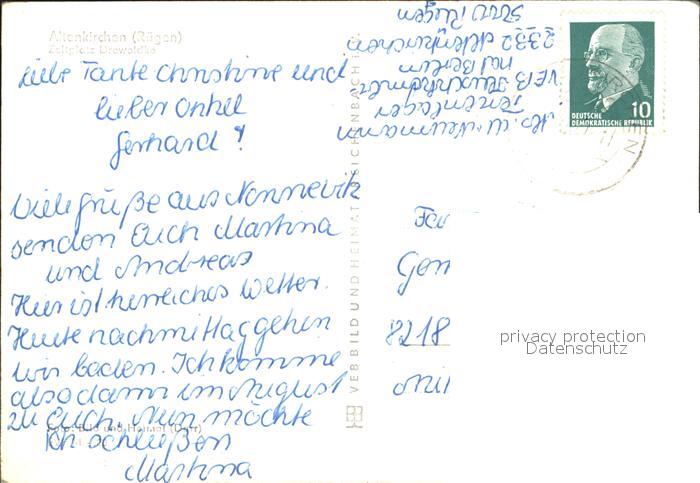 Altenkirchen (Rügen)
Zeltplatz Drewoldke
Liebe Tante Christine und
lieber Onkel
Gerhard!
Viele Grüße aus Nonnevitz
senden Euch Martina
und Andreas
Hier ist herrliches Wetter.
Heute nachmittag gehen
wir baden. Ich komme
also dann im August
zu Euch. Nun möchte
ich schließen
Martina
Foto: Bild und Heimat
VEB BILD UND HEIMAT REICHENBACH i. V.
Neumann
Ferienlager
VEB
NW Berlin
2332 Altenkirchen
Rügen
10
DEUTSCHE
DEMOKRATISCHE REPUBLIK
Fa
Gen
8218
privacy protection
Datenschutz